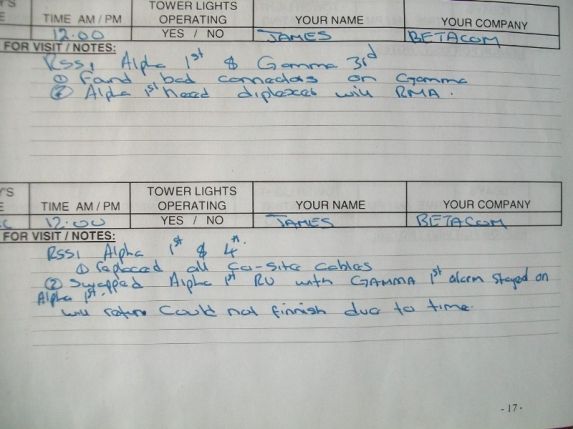 TIME AM / PM TOWER LIGHTS OPERATING YOUR NAME YOUR COMPANY
12:00 YES / NO JAMES BETACOM
FOR VISIT / NOTES:
RSSI Alpha 1st & Gamma 3rd
① Found bad connectors on Gamma
② Alpha 1st need diplexes will RMA.
TIME AM / PM TOWER LIGHTS OPERATING YOUR NAME YOUR COMPANY
12:00 YES / NO JAMES BETACOM
FOR VISIT / NOTES:
RSSI Alpha 1st & 4th.
① replaced all co-site cables
② Swapped Alpha 1st RU with GAMMA 1st alarm stayed on
Alpha 1st.
will return could not finnish due to time.
-17-